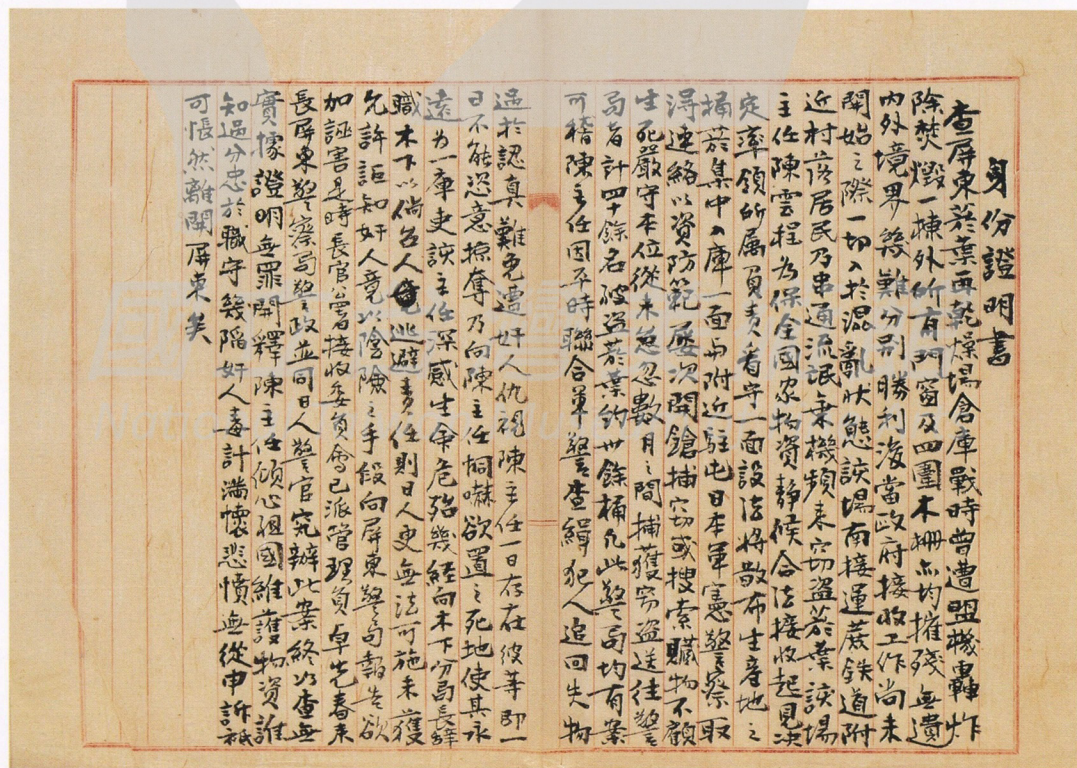 身份證明書
查屏東菸葉再乾燥場倉庫戰時曾遭盟機轟炸
除焚燬一棟外所有門窗及四圍木柵亦均摧殘無遺
內外境界幾難分別勝利後當政府接收工作尚未
開始之際一切入於混亂狀態該場南接運蔗鉄道附
近村落居民乃串通流氓乘機頻來窃盜菸葉該場
主任陳雲程為保全國家物資靜候合法接收起見决
定率領所属員責看守一面設法將散布生產地之
掃菸集中入庫一面與附近駐屯日本軍憲警察取
得連絡以資防範屡次開鎗捕窃或搜索贓物不顧
生死嚴守本位從未怠忽數月之間捕獲窃盜送往警
局者計四十餘名破盜菸葉約卅餘桶凡此警局均有案
可稽陳主任因平時聯合軍警查緝犯人追回失物
過於認真難免遭奸人仇視陳主任一日存在彼等即一
日不能恣意掠奪乃向陳主任恫嚇欲置之死地使其永
遠為一庫吏該主任深感生命危殆幾經向木下分局長辞
職木下以倘台人逃避責任則日人更無法可施未獲
允許詎知奸人竟以陰險之手段向屏東警局報告欲
加誣害是時長官署接收委員會已派管理員卓光春來
長屏東警察局警政並同日人警官究辦此案終以查無
實據證明無罪開釋陳主任傾心祖國維護物資誰
知過分忠於職守幾陷奸人毒計滿懷悲憤無從申訴祇
可悵然離開屏東矣